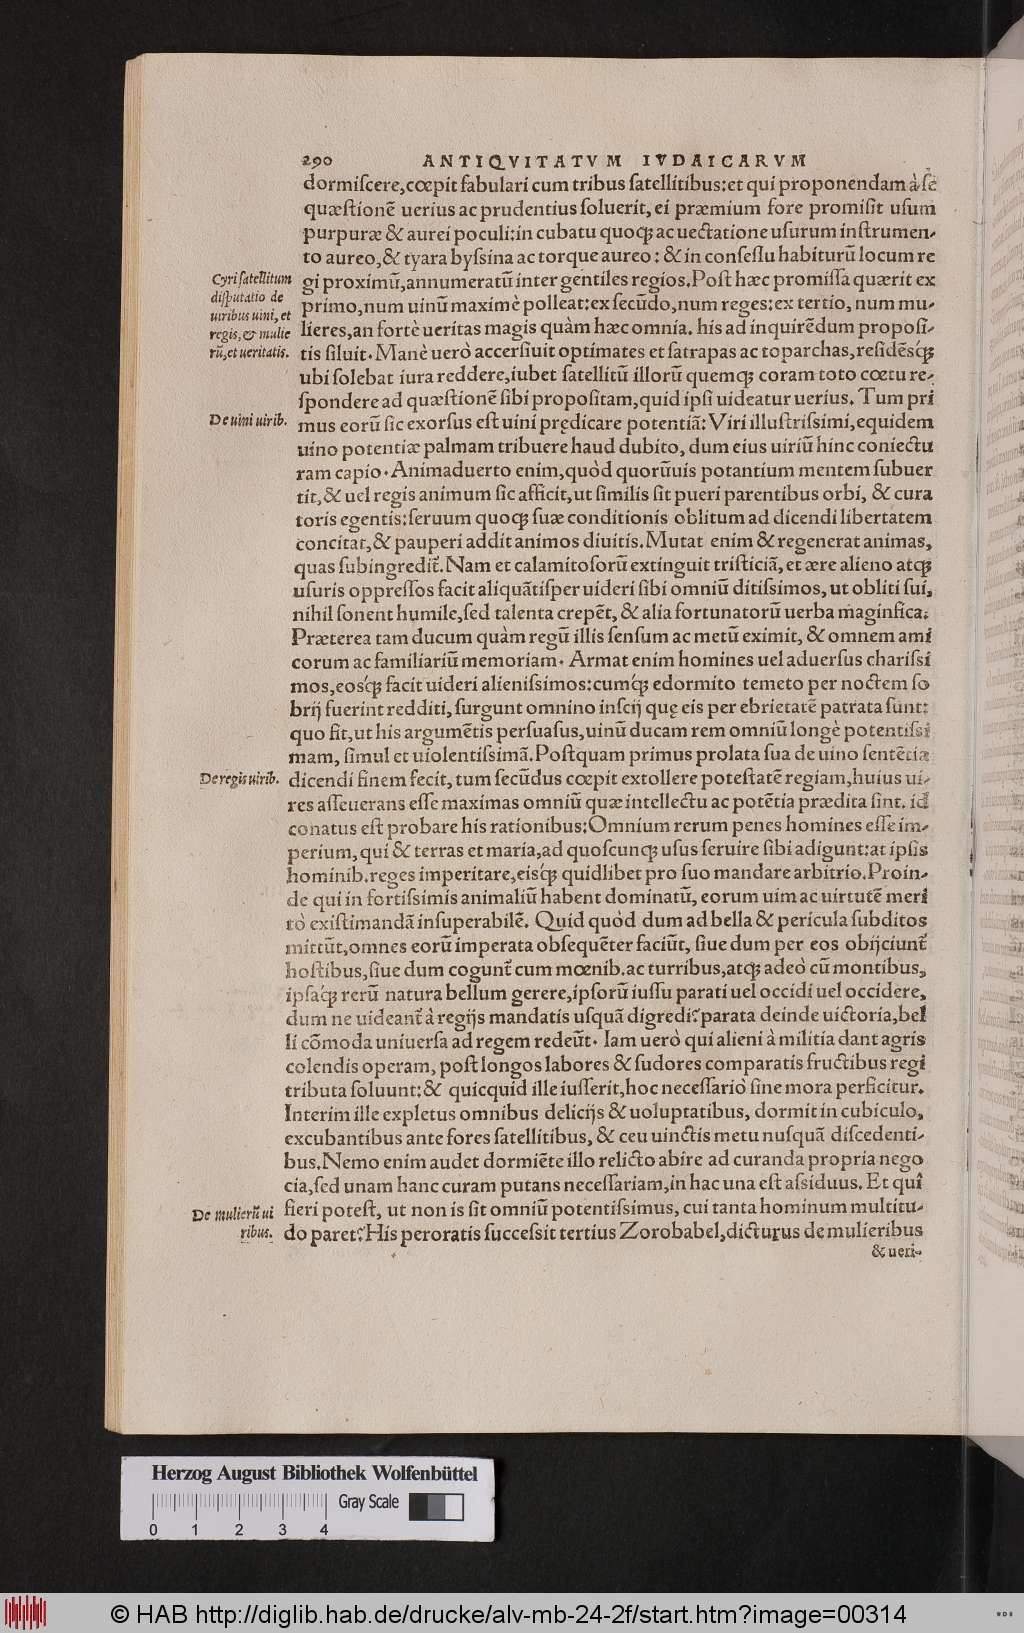 290 ANTIQVITATVM IVDAICARVM
dormiscere, cœpit fabulari cum tribus satellitibus: et qui proponendam à sẽ
quæstionẽ uerius ac prudentius soluerit, ei præmium fore promisit usum
purpuræ & aurei poculi: in cubatu quoq; ac uectatione usurum instrumen-
to aureo, & tyara byssina ac torque aureo: & in consessu habiturũ locum re
Cyri satellitum
disputatio de
uiribus uini, et
regis, & mulie
rũ, et ueritatis.
gi proximũ, annumeratũ inter gentiles regios. Post hæc promissa quærit ex
primo, num uinũ maximè polleat: ex secũdo, num reges: ex tertio, num mu-
lieres, an fortè ueritas magis quàm hæc omnia. his ad inquirẽdum proposi-
tis siluit. Manè uerò accersiuit optimates et satrapas ac toparchas, residẽsq́;
ubi solebat iura reddere, iubet satellitũ illorũ quemq; coram toto cœtu re-
spondere ad quæstionẽ sibi propositam, quid ipsi uideatur uerius. Tum pri
De uini uirib.
mus eorũ sic exorsus est uini prędicare potentiã: Viri illustrissimi, equidem
uino potentiæ palmam tribuere haud dubito, dum eius uiriũ hinc coniectu
ram capio. Animaduerto enim, quòd quorũuis potantium mentem subuer
tit, & uel regis animum sic afficit, ut similis sit pueri parentibus orbi, & cura
toris egentis: seruum quoq; suæ conditionis oblitum ad dicendi libertatem
concitat, & pauperi addit animos diuitis. Mutat enim & regenerat animas,
quas subingredit̃. Nam et calamitosorũ extinguit tristiciã, et ære alieno atq;
usuris oppressos facit aliquãtisper uideri sibi omniũ ditissimos, ut obliti sui,
nihil sonent humile, sed talenta crepẽt, & alia fortunatorũ uerba maginfica.
Præterea tam ducum quàm regũ illis sensum ac metũ eximit, & omnem ami
corum ac familiariũ memoriam. Armat enim homines uel aduersus charissi
mos, eosq́; facit uideri alienissimos: cumq́; edormito temeto per noctem so
brij fuerint redditi, surgunt omnino inscij quę eis per ebrietatẽ patrata sunt:
quo fit, ut his argumẽtis persuasus, uinũ ducam rem omniũ longè potentissi
mam, simul et uiolentissimã. Postquam primus prolata sua de uino sentẽcia
De regis uirib.
dicendi finem fecit, tum secũdus cœpit extollere potestatẽ regiam, huius ui-
res asseuerans esse maximas omniũ quæ intellectu ac potẽtia prædita sint. id
conatus est probare his rationibus: Omnium rerum penes homines esse im-
perium, qui & terras et maria, ad quoscunq; usus seruire sibi adigunt: at ipsis
hominib. reges imperitare, eisq́; quidlibet pro suo mandare arbitrio. Proin-
de qui in fortissimis animaliũ habent dominatũ, eorum uim ac uirtutẽ meri
tò existimandã insuperabilẽ. Quid quòd dum ad bella & pericula subditos
mittũt, omnes eorũ imperata obsequẽter faciũt, siue dum per eos obijciunt̃
hostibus, siue dum cogunt̃ cum mœnib. ac turribus, atq; adeò cũ montibus,
ipsaq́; rerũ natura bellum gerere, ipsorũ iussu parati uel occidi uel occidere,
dum ne uideant̃ à regijs mandatis usquã digredi? parata deinde uictoria, bel
li cõmoda uniuersa ad regem redeũt. Iam uerò qui alieni à militia dant agris
colendis operam, post longos labores & sudores comparatis fructibus regi
tributa soluunt: & quicquid ille iusserit, hoc necessariò sine mora perficitur.
Interim ille expletus omnibus delicijs & uoluptatibus, dormit in cubiculo,
excubantibus ante fores satellitibus, & ceu uinctis metu nusquã discedenti-
bus. Nemo enim audet dormiẽte illo relicto abire ad curanda propria nego
cia, sed unam hanc curam putans necessariam, in hac una est assiduus. Et qui
De mulierũ ui
ribus.
fieri potest, ut non is sit omniũ potentissimus, cui tanta hominum multitu-
do paret? His peroratis successit tertius Zorobabel, dicturus de mulieribus
& ueri-
Herzog August Bibliothek Wolfenbüttel
Gray Scale
0 1 2 3 4
© HAB http://diglib.hab.de/drucke/alv-mb-24-2f/start.htm?image=00314